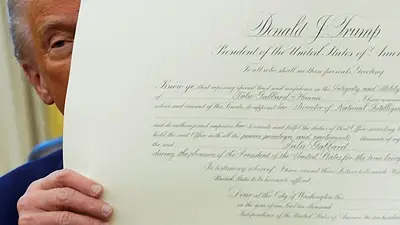 Donald J. Trump
President of the United States of Amer
To all who shall see these presents, Greeting
Know ye that reposing special trust and confidence in the Integrity and Ability
of Tulsi Gabbard of Hawaii I have nomin
advice and consent of the Senate, do appoint her Director of National Intellige
and do authorize and empower her to execute and fulfil the duties of that Office according to
hold the said Office with all the powers, privileges, and emoluments thereunto of
the said Tulsi Gabbard
during the pleasure of the President of the United States for the time being
In testimony whereof I have caused these Letters to be made Patent
United States to be hereunto affixed
Done at the City of Washington this
in the year of our Lord two thousand
Independence of the United States of America the two hundred